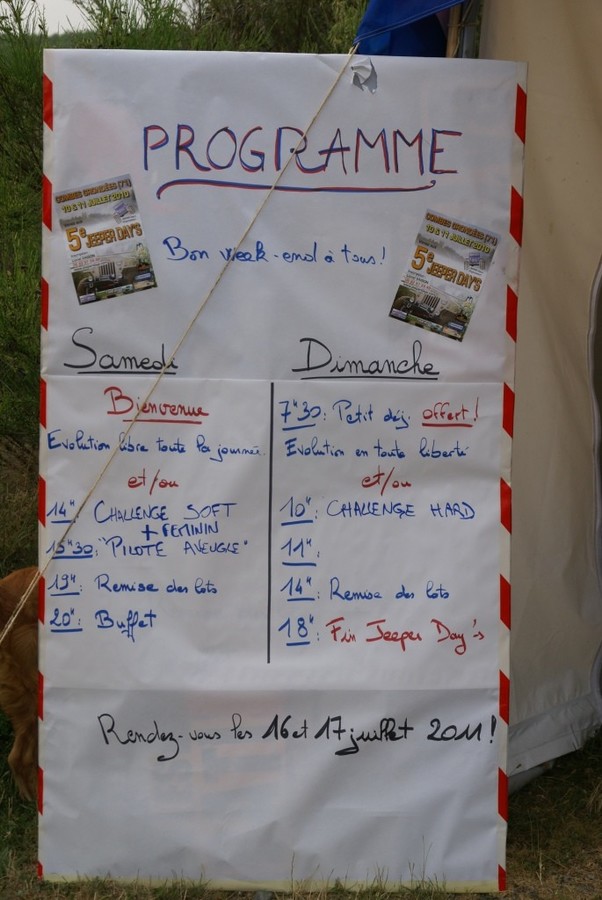 PROGRAMME
COMBES CRONZIÉES (71)
10 & 11 JUILLET 2010
5e JEEPER DAY'S
COMBES CRONZIÉES (71)
10 & 11 JUILLET 2010
5e JEEPER DAY'S
Bon week-end à tous!
Samedi
Bienvenue
Evolution libre toute la journée.
et/ou
14H: CHALLENGE SOFT
+ FEMININ
15H30: "PILOTE AVEUGLE"
19H: Remise des lots
20H: Buffet
Dimanche
7H30: Petit déj. offert!
Evolution en toute liberté
et/ou
10H: CHALLENGE HARD
11H:
14H: Remise des lots
18H: Fin Jeeper Day's
Rendez-vous les 16 et 17 juillet 2011!